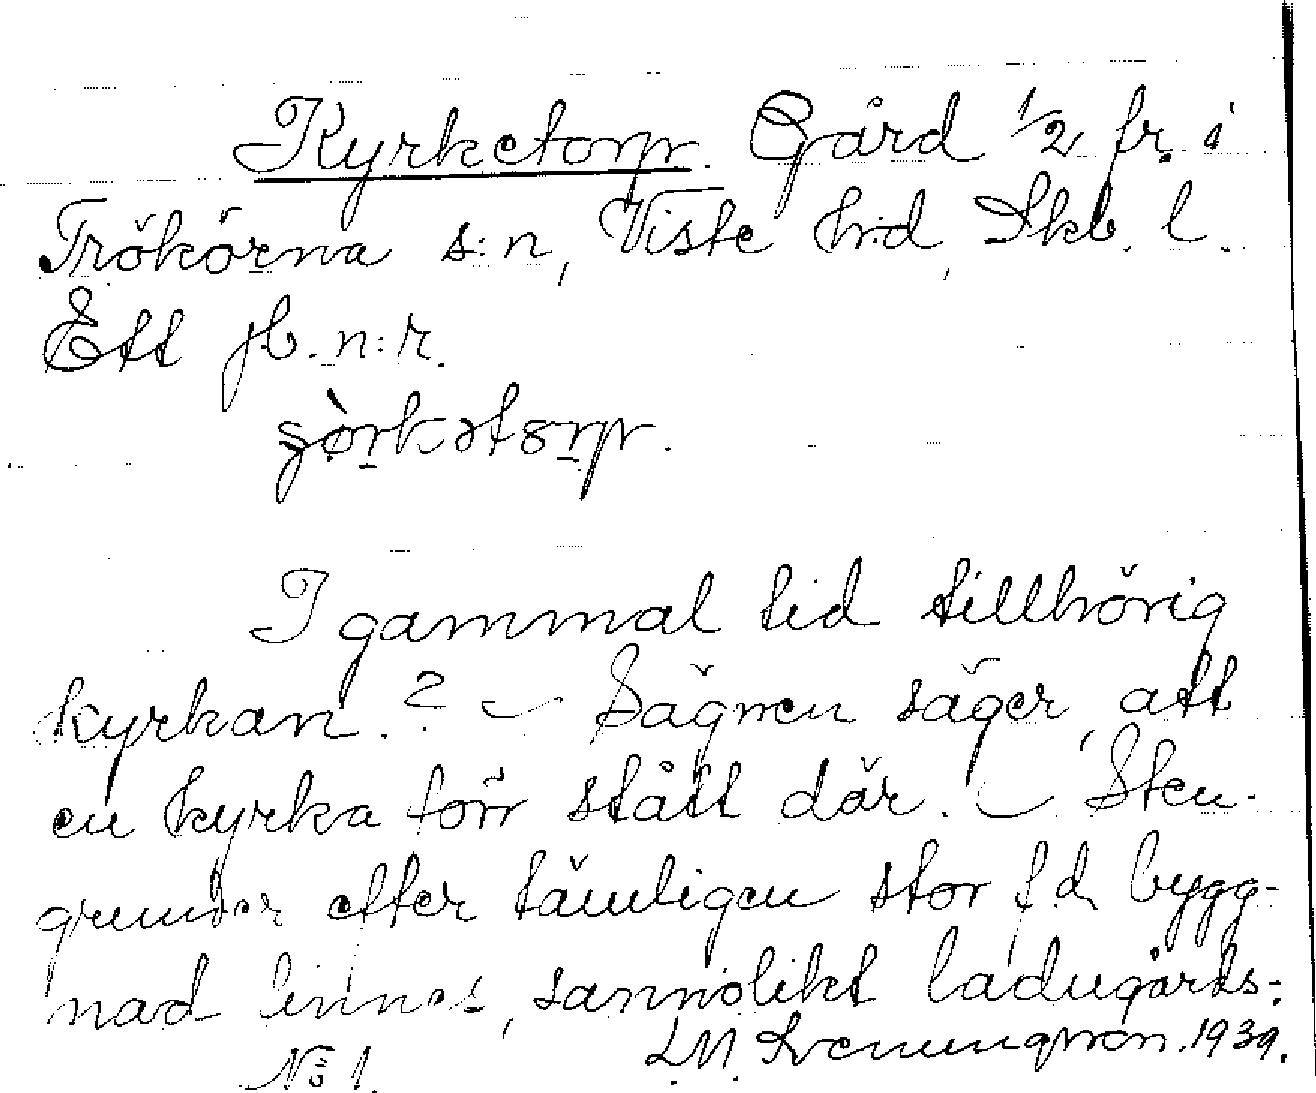 Kyrketorp. Gård 1/2 fr. i
Trökörna s:n, Viste hrd, Skb. l.
Ett jb. n:r.
I gammal tid tillhörig
kyrkan. ? — Sägnen säger, att
en kyrka förr stått där. — Sten-
grunder efter tämligen stor f.d. bygg-
nad finnes, sannolikt ladugårds-
No 1. L.M. 1939.